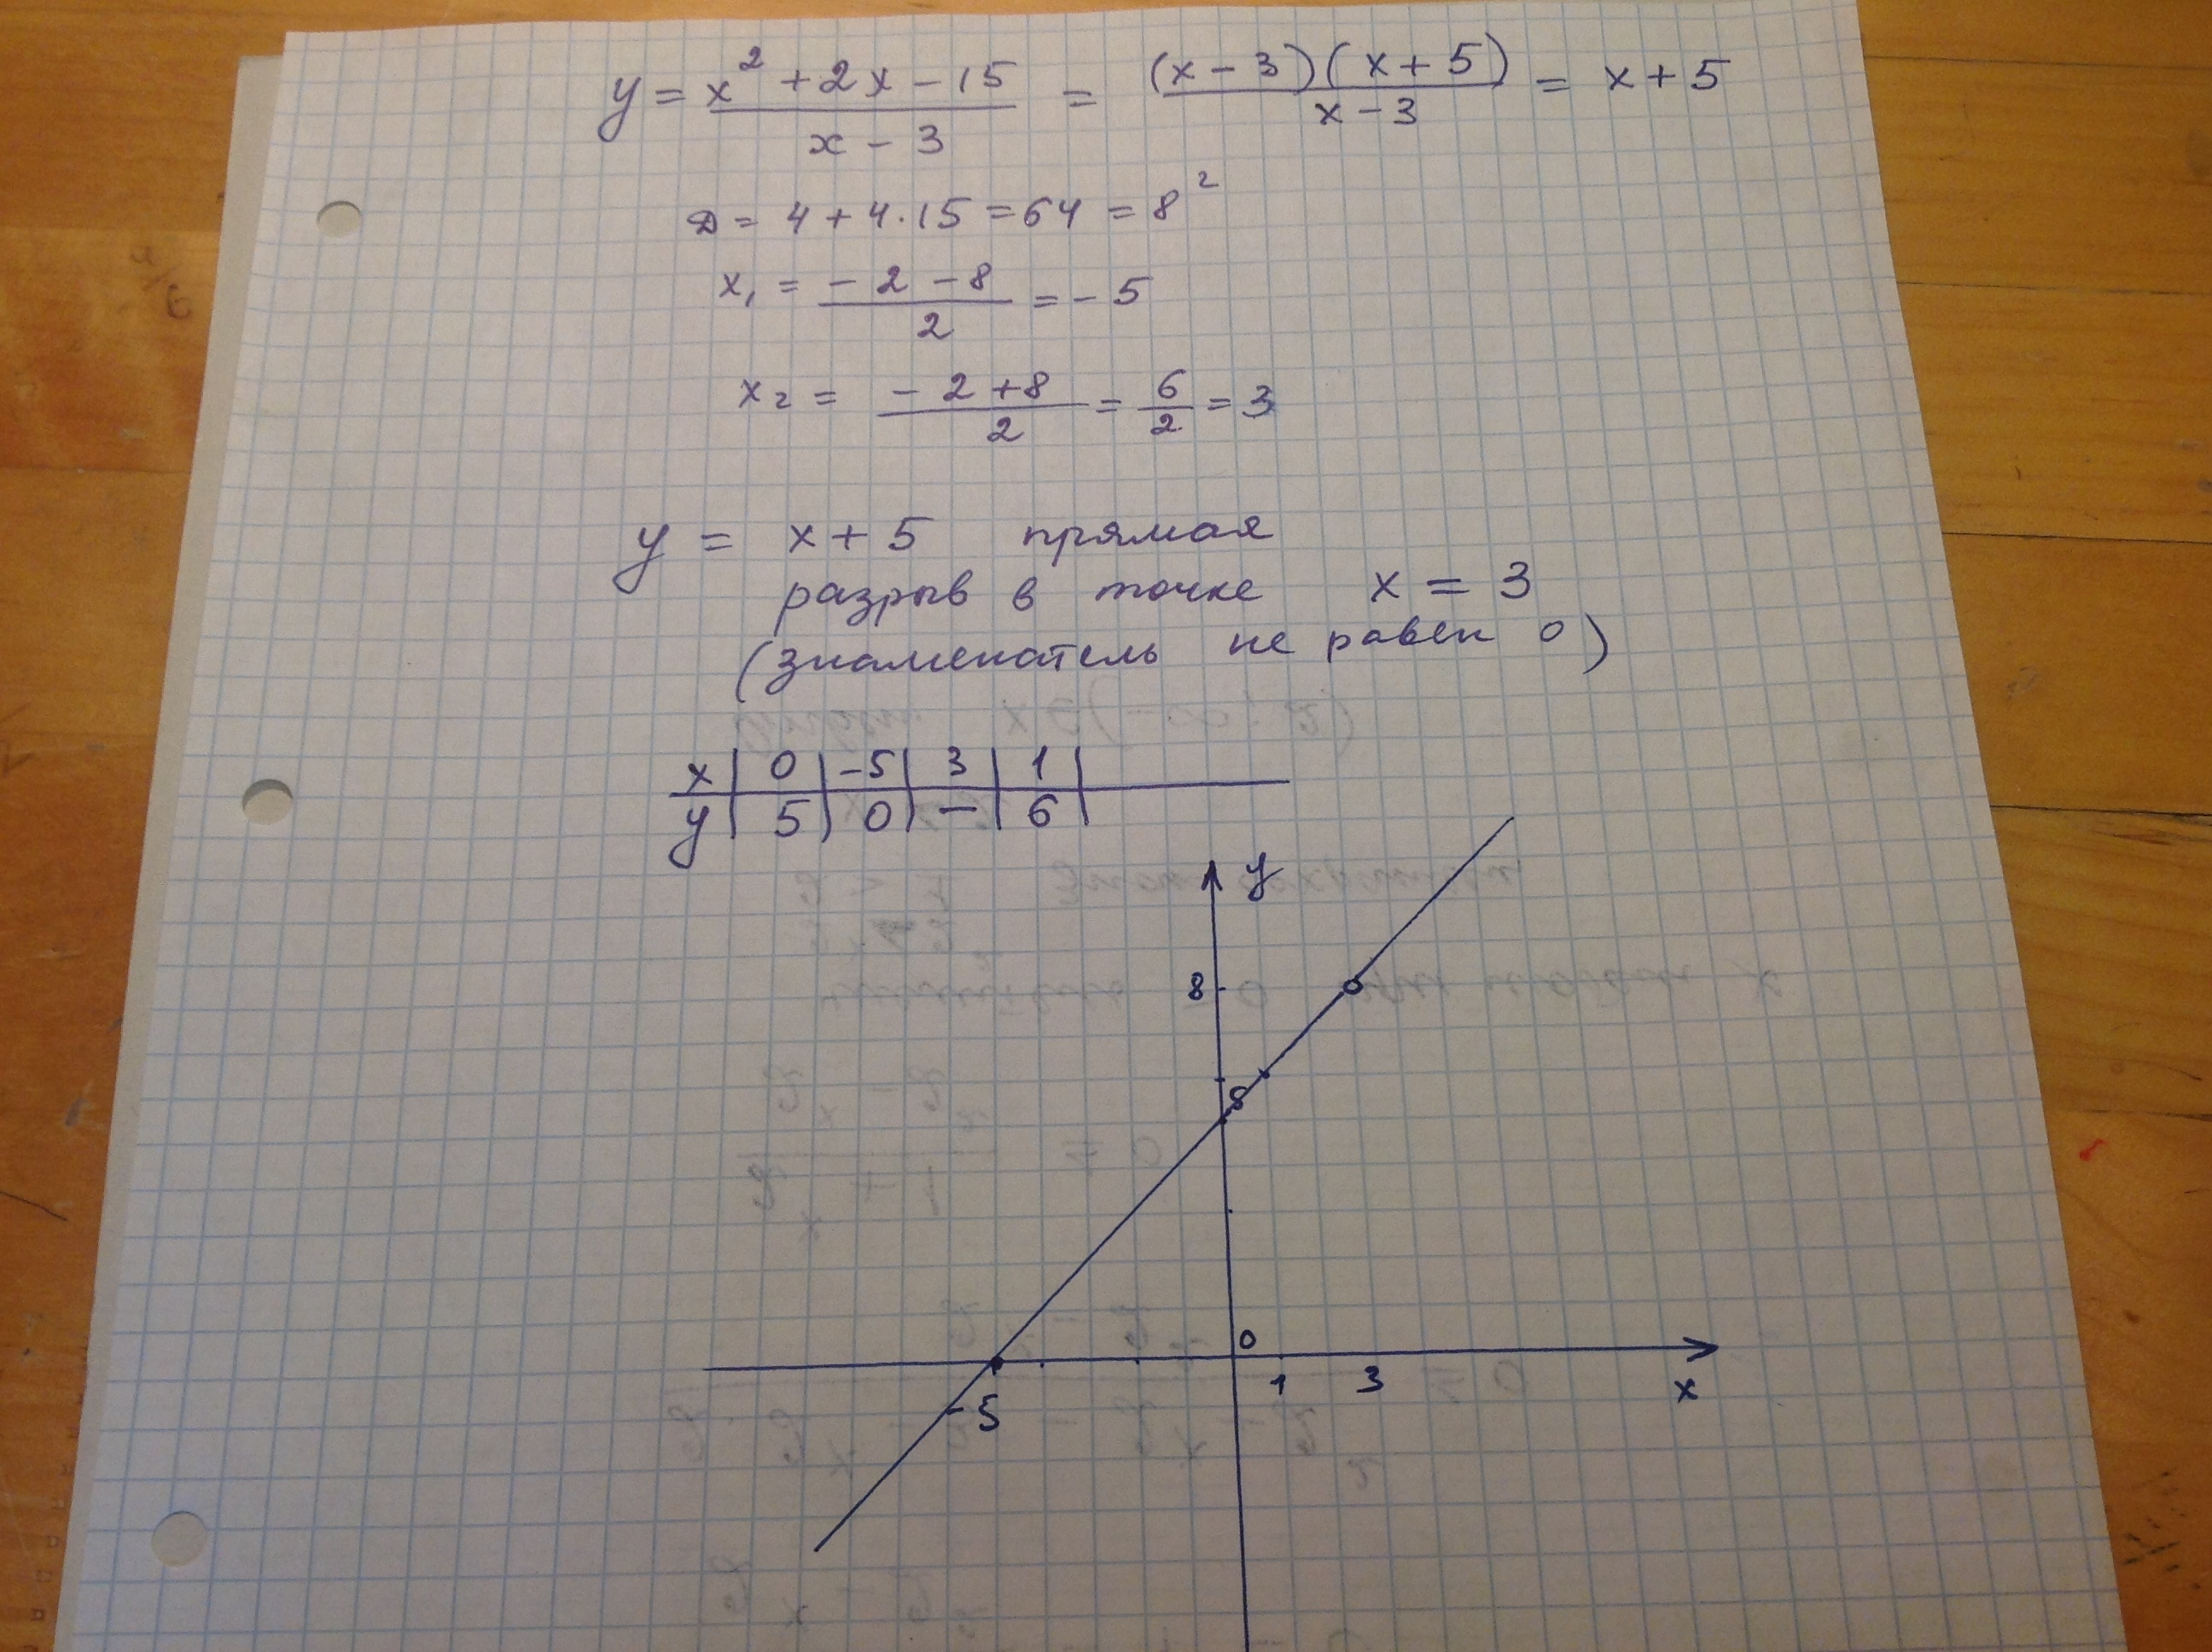 y = x² + 2x - 15 / x - 3 = (x - 3)(x + 5) / x - 3 = x + 5
D = 4 + 4 · 15 = 64 = 8²
x₁ = - 2 - 8 / 2 = - 5
x₂ = - 2 + 8 / 2 = 6 / 2 = 3
y = x + 5 прямая
разрыв в точке x = 3
(знаменатель не равен 0)
x | 0 | -5 | 3 | 1 |
y | 5 | 0 | — | 6 |
y
8
5
0
1 3 x
-5